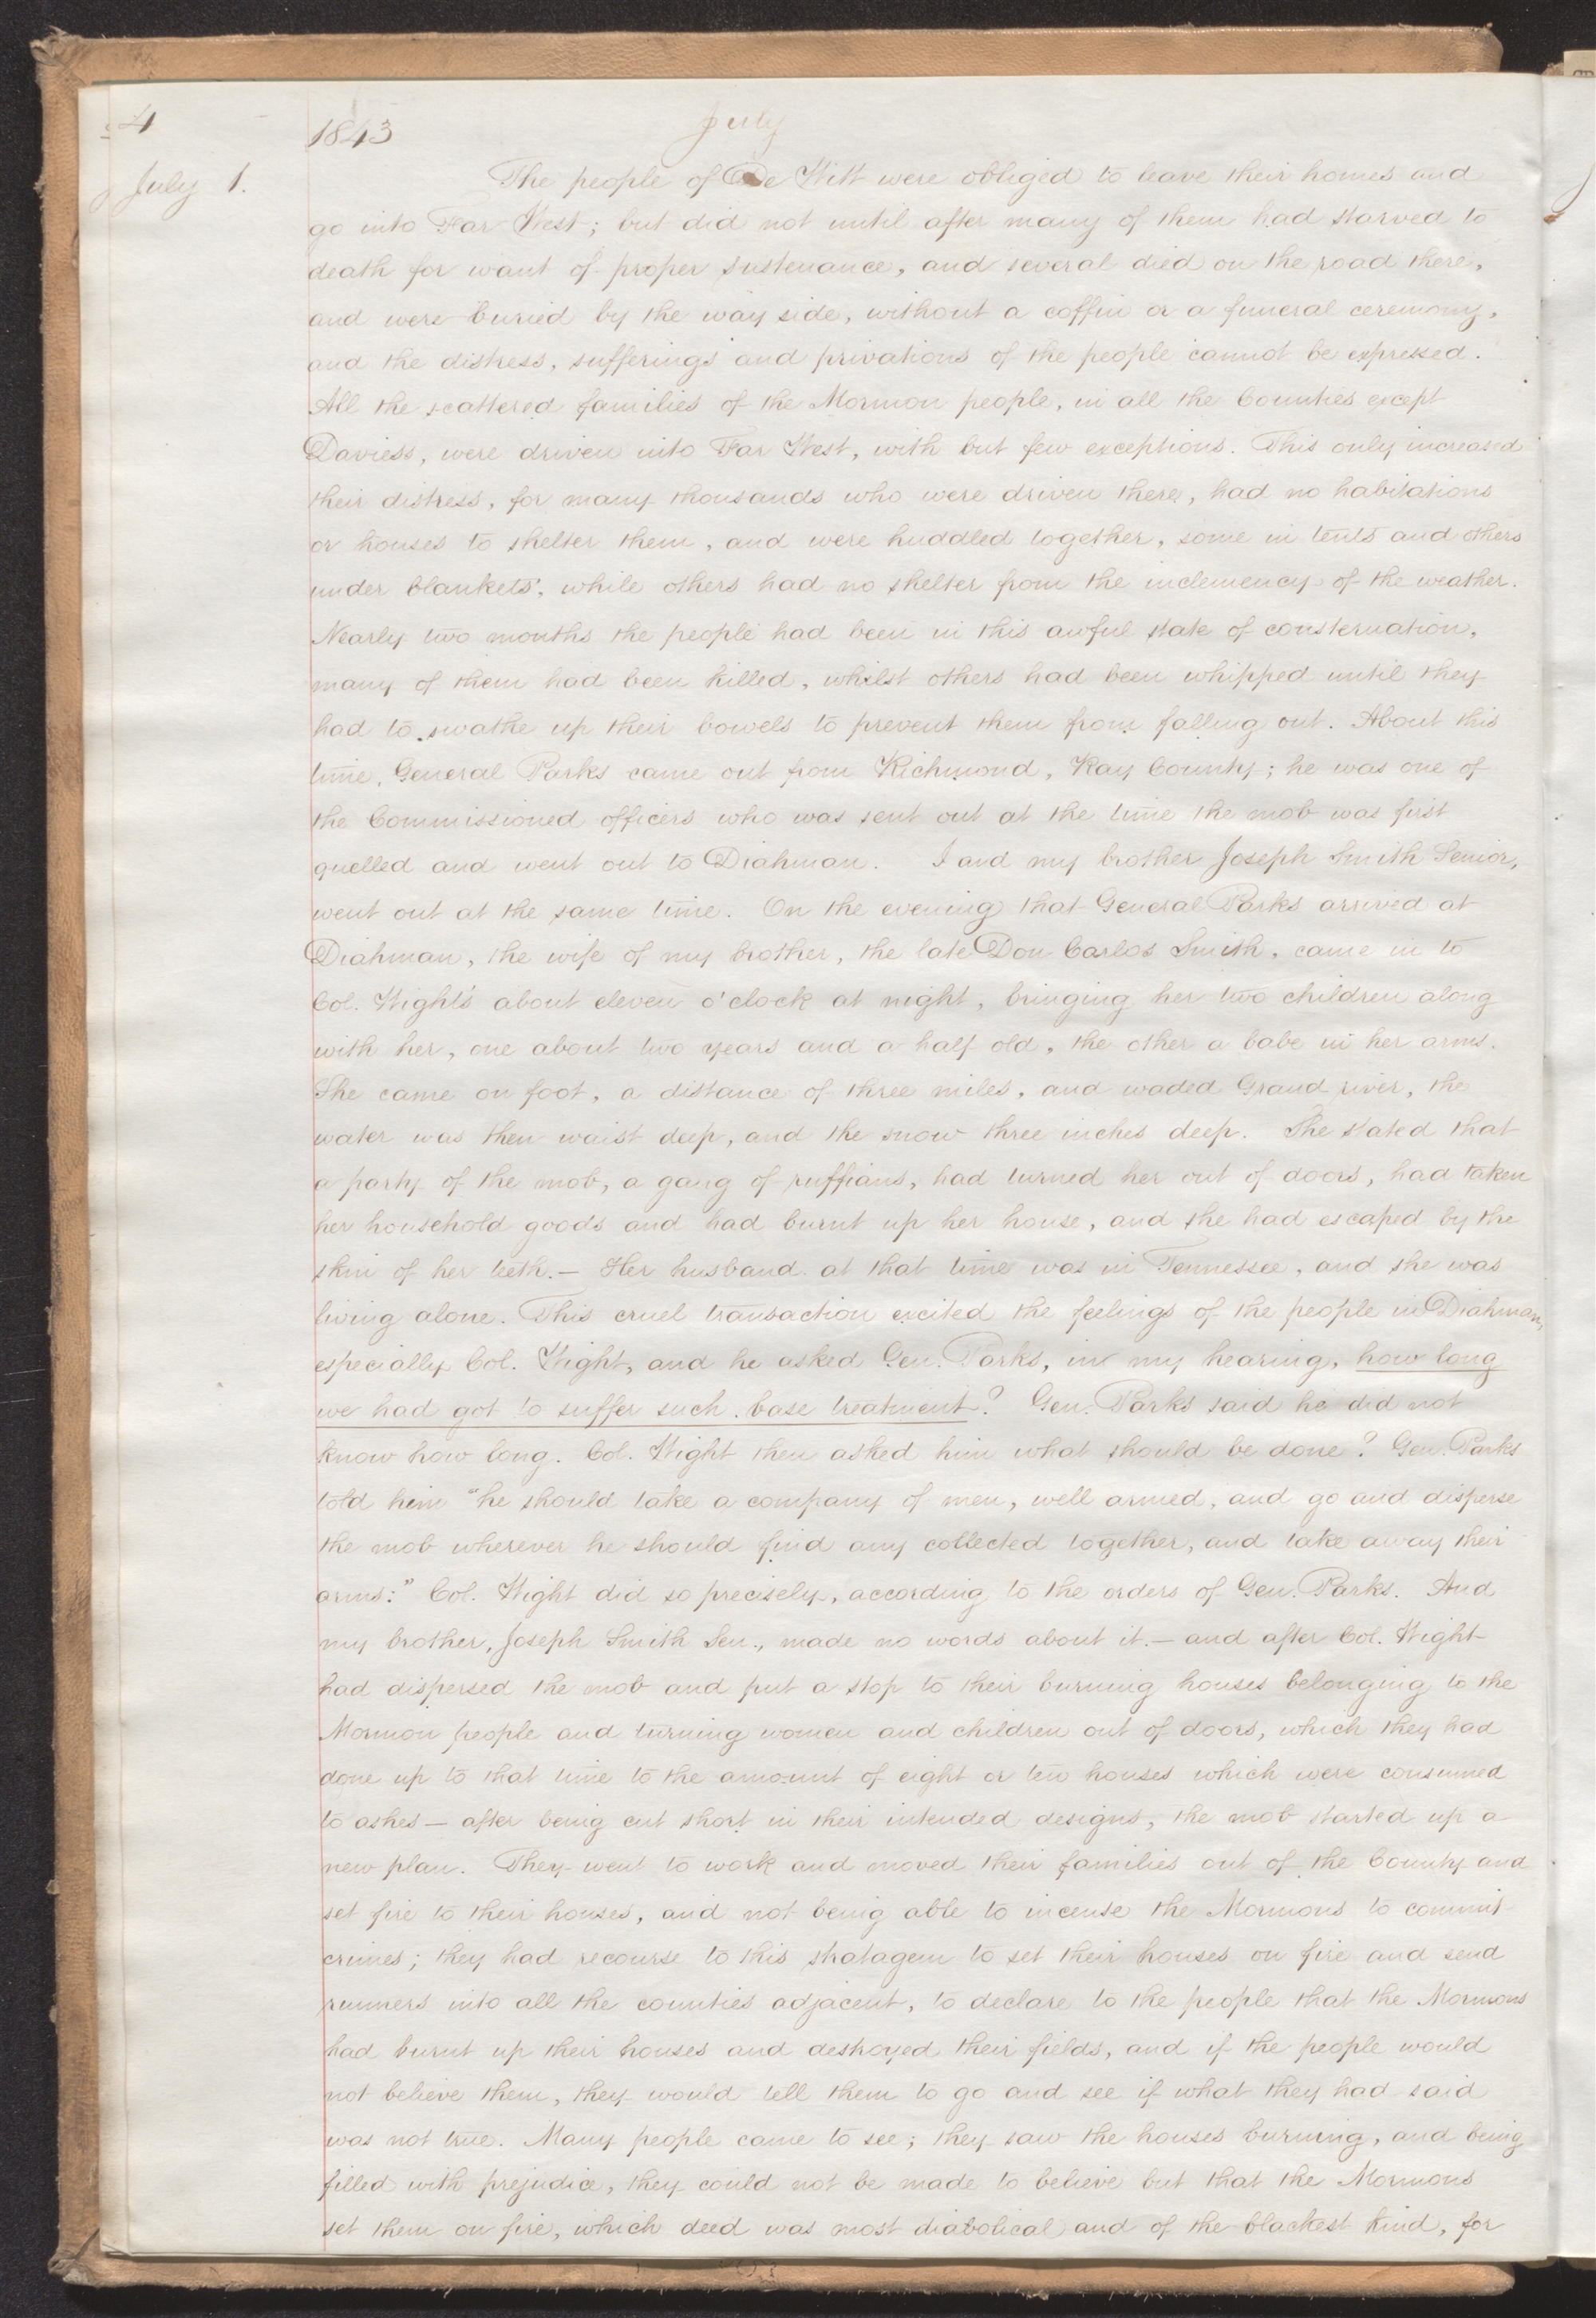 4
1843
July
July 1.
The people of De Witt were obliged to leave their homes and
go into Far West; but did not until after many of them had starved to
death for want of proper sustenance, and several died on the road there,
and were buried by the way side, without a coffin or a funeral ceremony,
and the distress, sufferings and privations of the people cannot be expressed.
All the scattered families of the Mormon people, in all the Counties except
Daviess, were driven into Far West, with but few exceptions. This only increased
their distress, for many thousands who were driven there, had no habitations
or houses to shelter them, and were huddled together, some in tents and others
under blankets, while others had no shelter from the inclemency of the weather.
Nearly two months the people had been in this awful state of consternation,
many of them had been killed, whilst others had been whipped until they
had to swathe up their bowels to prevent them from falling out. About this
time, General Parks came out from Richmond, Ray County; he was one of
the Commissioned officers who was sent out at the time the mob was first
quelled and went out to Diahman. I and my brother Joseph Smith Senior,
went out at the same time. On the evening that General Parks arrived at
Diahman, the wife of my brother, the late Don Carlos Smith, came in to
Col. Wight's about eleven o'clock at night, bringing her two children along
with her, one about two years and a half old, the other a babe in her arms.
She came on foot, a distance of three miles, and waded Grand river, the
water was then waist deep, and the snow three inches deep. She stated that
a party of the mob, a gang of ruffians, had turned her out of doors, had taken
her household goods and had burnt up her house, and she had escaped by the
skin of her teeth.— Her husband at that time was in Tennessee, and she was
living alone. This cruel transaction excited the feelings of the people in Diahman,
especially Col. Wight, and he asked Gen. Parks, in my hearing, how long
we had got to suffer such base treatment? Gen. Parks said he did not
know how long. Col. Wight then asked him what should be done? Gen. Parks
told him "he should take a company of men, well armed, and go and disperse
the mob wherever he should find any collected together, and take away their
arms:" Col. Wight did so precisely, according to the orders of Gen. Parks. And
my brother, Joseph Smith Sen., made no words about it.— and after Col. Wight
had dispersed the mob and put a stop to their burning houses belonging to the
Mormon people and turning women and children out of doors, which they had
done up to that time to the amount of eight or ten houses which were consumed
to ashes— after being cut short in their intended designs, the mob started up a
new plan. They went to work and moved their families out of the County and
set fire to their houses, and not being able to incense the Mormons to commit
crimes; they had recourse to this stratagem to set their houses on fire and send
runners into all the counties adjacent, to declare to the people that the Mormons
had burnt up their houses and destroyed their fields, and if the people would
not believe them, they would tell them to go and see if what they had said
was not true. Many people came to see; they saw the houses burning, and being
filled with prejudice, they could not be made to believe but that the Mormons
set them on fire, which deed was most diabolical and of the blackest kind, for